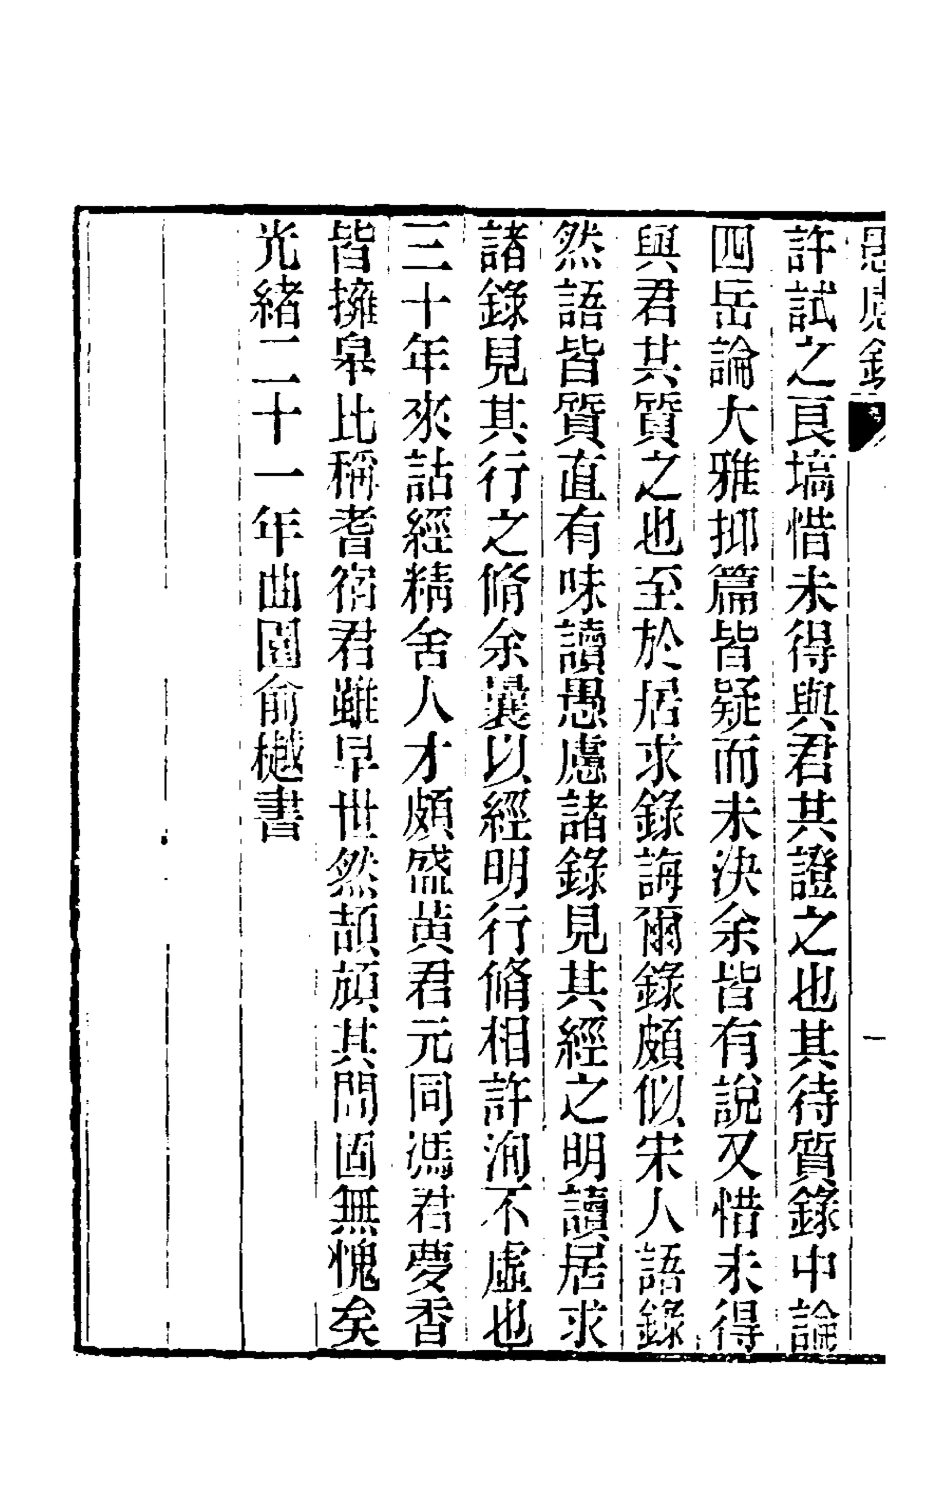 愚慮錄 一
許試之良塙惜未得與君其證之也其待質錄中論
四岳論大雅抑篇皆疑而未決余皆有說又惜未得
與君共質之也至於居求錄誨爾錄頗似宋人語錄
然語皆質直有味讀愚慮諸錄見其經之明讀居求
諸錄見其行之脩余曩以經明行脩相許洵不虛也
三十年來詁經精舍人才頗盛黃君元同馮君夢香
皆擁皋比稱耆宿君雖早世然頡頏其閒固無愧矣
光緒二十一年曲園俞樾書